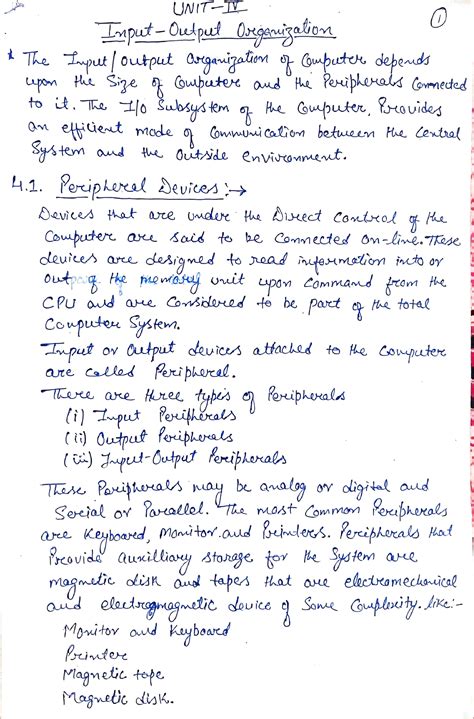 UNIT-IV
①
Input-Output Organization
* The Input/Output Organization of Computer depends
upon the Size of Computer and the Peripherals Connected
to it. The I/O Subsystem of the Computer, Provides
an efficient mode of Communication between the Central
System and the Outside environment.
4.1. Peripheral Devices :→
Devices that are under the Direct Control of the
Computer are said to be Connected on-line. These
devices are designed to read information into or
out of the memory unit upon Command from the
CPU and are Considered to be part of the total
Computer System.
Input or Output devices attached to the Computer
are called Peripheral.
There are three types of Peripherals
(i) Input Peripherals
(ii) Output Peripherals
(iii) Input-Output Peripherals
These Peripherals may be analog or digital and
Serial or Parallel. The most Common Peripherals
are Keyboard, Monitor and Printers. Peripherals that
Provide auxilliary storage for the System are
magnetic disk and tapes that are electromechanical
and electromagnetic device of Some Complexity. like:-
Monitor and Keyboard
Printer
Magnetic tape
Magnetic disk.